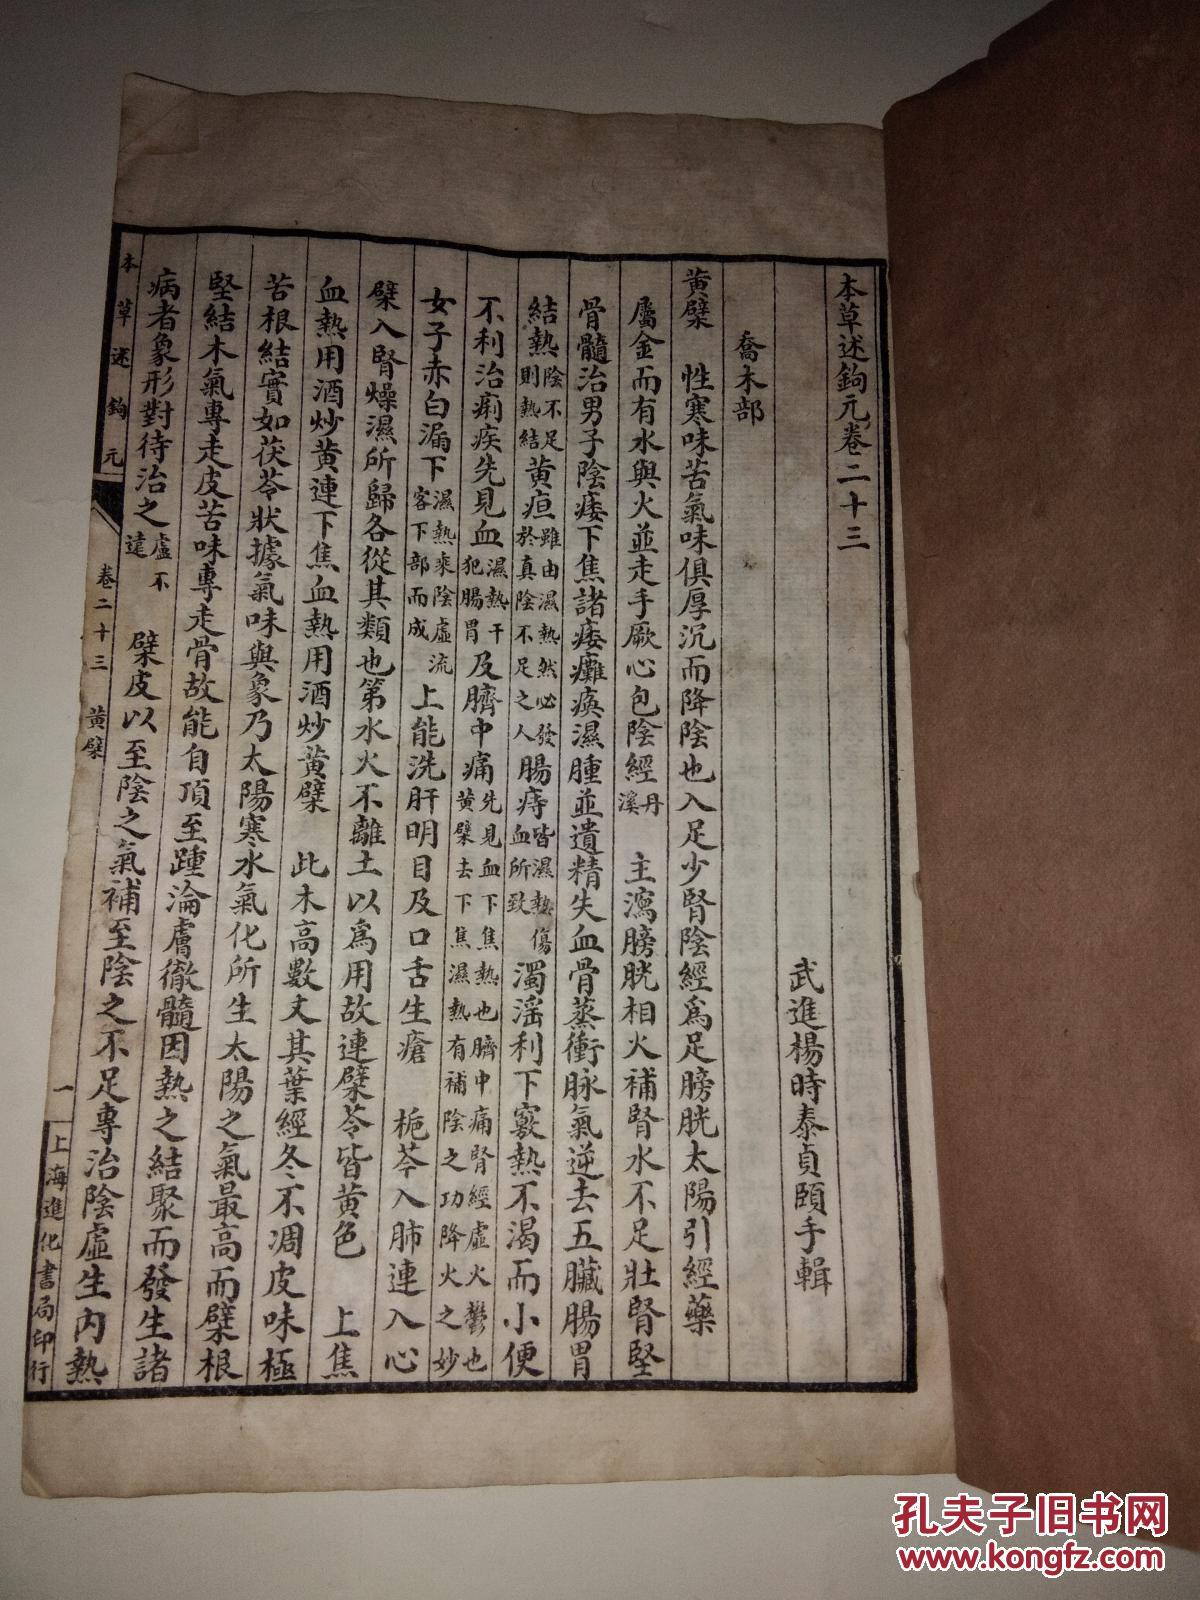 本草述鉤元卷二十三
武進楊時泰貞頤手輯
喬木部
黃檗　性寒味苦氣味俱厚沉而降陰也入足少腎陰經爲足膀胱太陽引經藥
屬金而有水與火並走手厥心包陰經丹溪　主瀉膀胱相火補腎水不足壯腎堅
骨髓治男子陰痿下焦諸痿癱瘓濕腫並遺精失血骨蒸衝脉氣逆去五臟腸胃
結熱陰不足則熱結黃疸雖由濕熱然必發於真陰不足之人腸痔皆濕熱傷血所致濁淫利下竅熱不渴而小便
不利治痢疾先見血濕熱干犯腸胃及臍中痛先見血下焦熱也臍中痛腎經虛火鬱也黃檗去下焦濕熱有補陰之功降火之妙
女子赤白漏下濕熱乘陰虛流客下部而成上能洗肝明目及口舌生瘡　梔芩入肺連入心
檗入腎燥濕所歸各從其類也第水火不離土以爲用故連檗芩皆黃色　上焦
血熱用酒炒黃連下焦血熱用酒炒黃檗　此木高數丈其葉經冬不凋皮味極
苦根結實如茯苓狀據氣味與象乃太陽寒水氣化所生太陽之氣最高而檗根
堅結木氣專走皮苦味專走骨故能自頂至踵淪膚徹髓因熱之結聚而發生諸
病者象形對待治之虛不遠　檗皮以至陰之氣補至陰之不足專治陰虛生內熱
本草述鉤元
卷二十三　黃檗
一
上海進化書局印行
孔夫子旧书网
www.kongfz.com